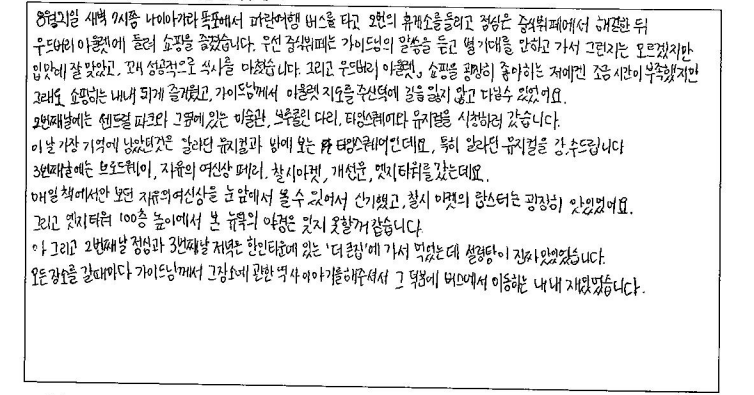 8월21일 새벽 7시쯤 나이아가라 폭포에서 파란여행 버스를 타고 2번의 휴게소를 들리고 점심은 중식뷔페에서 해결한 뒤
우드버리 아울렛에 들려 쇼핑을 즐겼습니다. 우선 중식뷔페는 가이드님의 말씀을 듣고 별 기대를 안하고 가서 그런지는 모르겠지만
입맛에 잘 맞았고, 꽤 성공적으로 식사를 마쳤습니다. 그리고 우드버리 아울렛, 쇼핑을 굉장히 좋아하는 저에겐 조금 시간이 부족했지만
그래도 쇼핑하는 내내 되게 즐거웠고, 가이드님께서 아울렛 지도를 주신덕에 길을 잃지 않고 다닐수 있었어요.
2번째날에는 센트럴 파크와 그 옆에 있는 미술관, 브루클린 다리, 타임스퀘어와 뮤지컬을 시청하러 갔습니다.
이날 가장 기억에 남았던것은 알라딘 뮤지컬과 밤에 오는 타임스퀘어인데요, 특히 알라딘 뮤지컬을 강.추드립니다
3번째날에는 브로드웨이, 자유의 여신상 페리, 첼시마켓, 개선문, 엣지타워를 갔는데요.
매일 책에서만 보던 자유의여신상을 눈앞에서 볼 수 있어서 신기했고, 첼시 마켓의 랍스터는 굉장히 맛있었어요.
그리고 엣지타워 100층 높이에서 본 뉴욕의 야경은 잊지 못할꺼 같습니다.
아 그리고 2번째날 점심과 3번째날 저녁은 한인타운에 있는 '더 큰집'에 가서 먹었는데 설렁탕이 진짜 맛있었습니다.
모든 장소를 갈때마다 가이드님께서 그장소에 관한 역사이야기를 해주셔서 그 덕분에 버스에서 이동하는 내내 재밌었습니다.